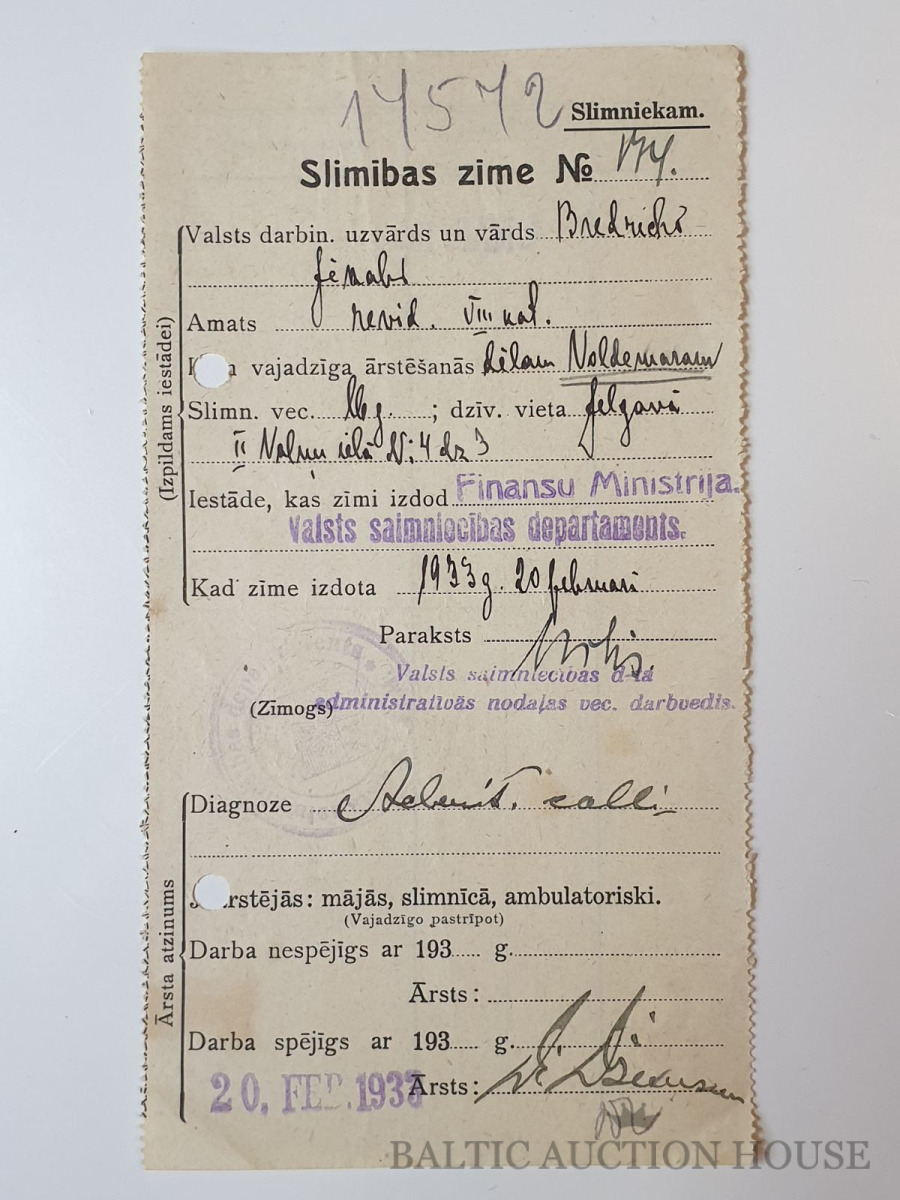 17572
Slimniekam.
Slimības zīme № 174.
(Izpildams iestādei)
Valsts darbin. uzvārds un vārds Bredrichs
Jēkabs
Amats revid. VIII kat.
K vajadzīga ārstēšanās dēlam Voldemaram
Slimn. vec. 16 g. ; dzīv. vieta Jelgavā
II ielā № 4 dz 3
Iestāde, kas zīmi izdod Finansu Ministrija.
Valsts saimniecības departaments.
Kad zīme izdota 1933 g. 20 februarī
Paraksts
Valsts saimniecības d-ta
(Zīmogs) administratīvās nodaļas vec. darbvedis.
Ārsta atzinums
Diagnoze colli
rstējās: mājās, slimnīcā, ambulatoriski.
(Vajadzīgo pastrīpot)
Darba nespējīgs ar 193 g.
Ārsts:
Darba spējīgs ar 193 g.
20. FEB. 1933 Ārsts:
BALTIC AUCTION HOUSE